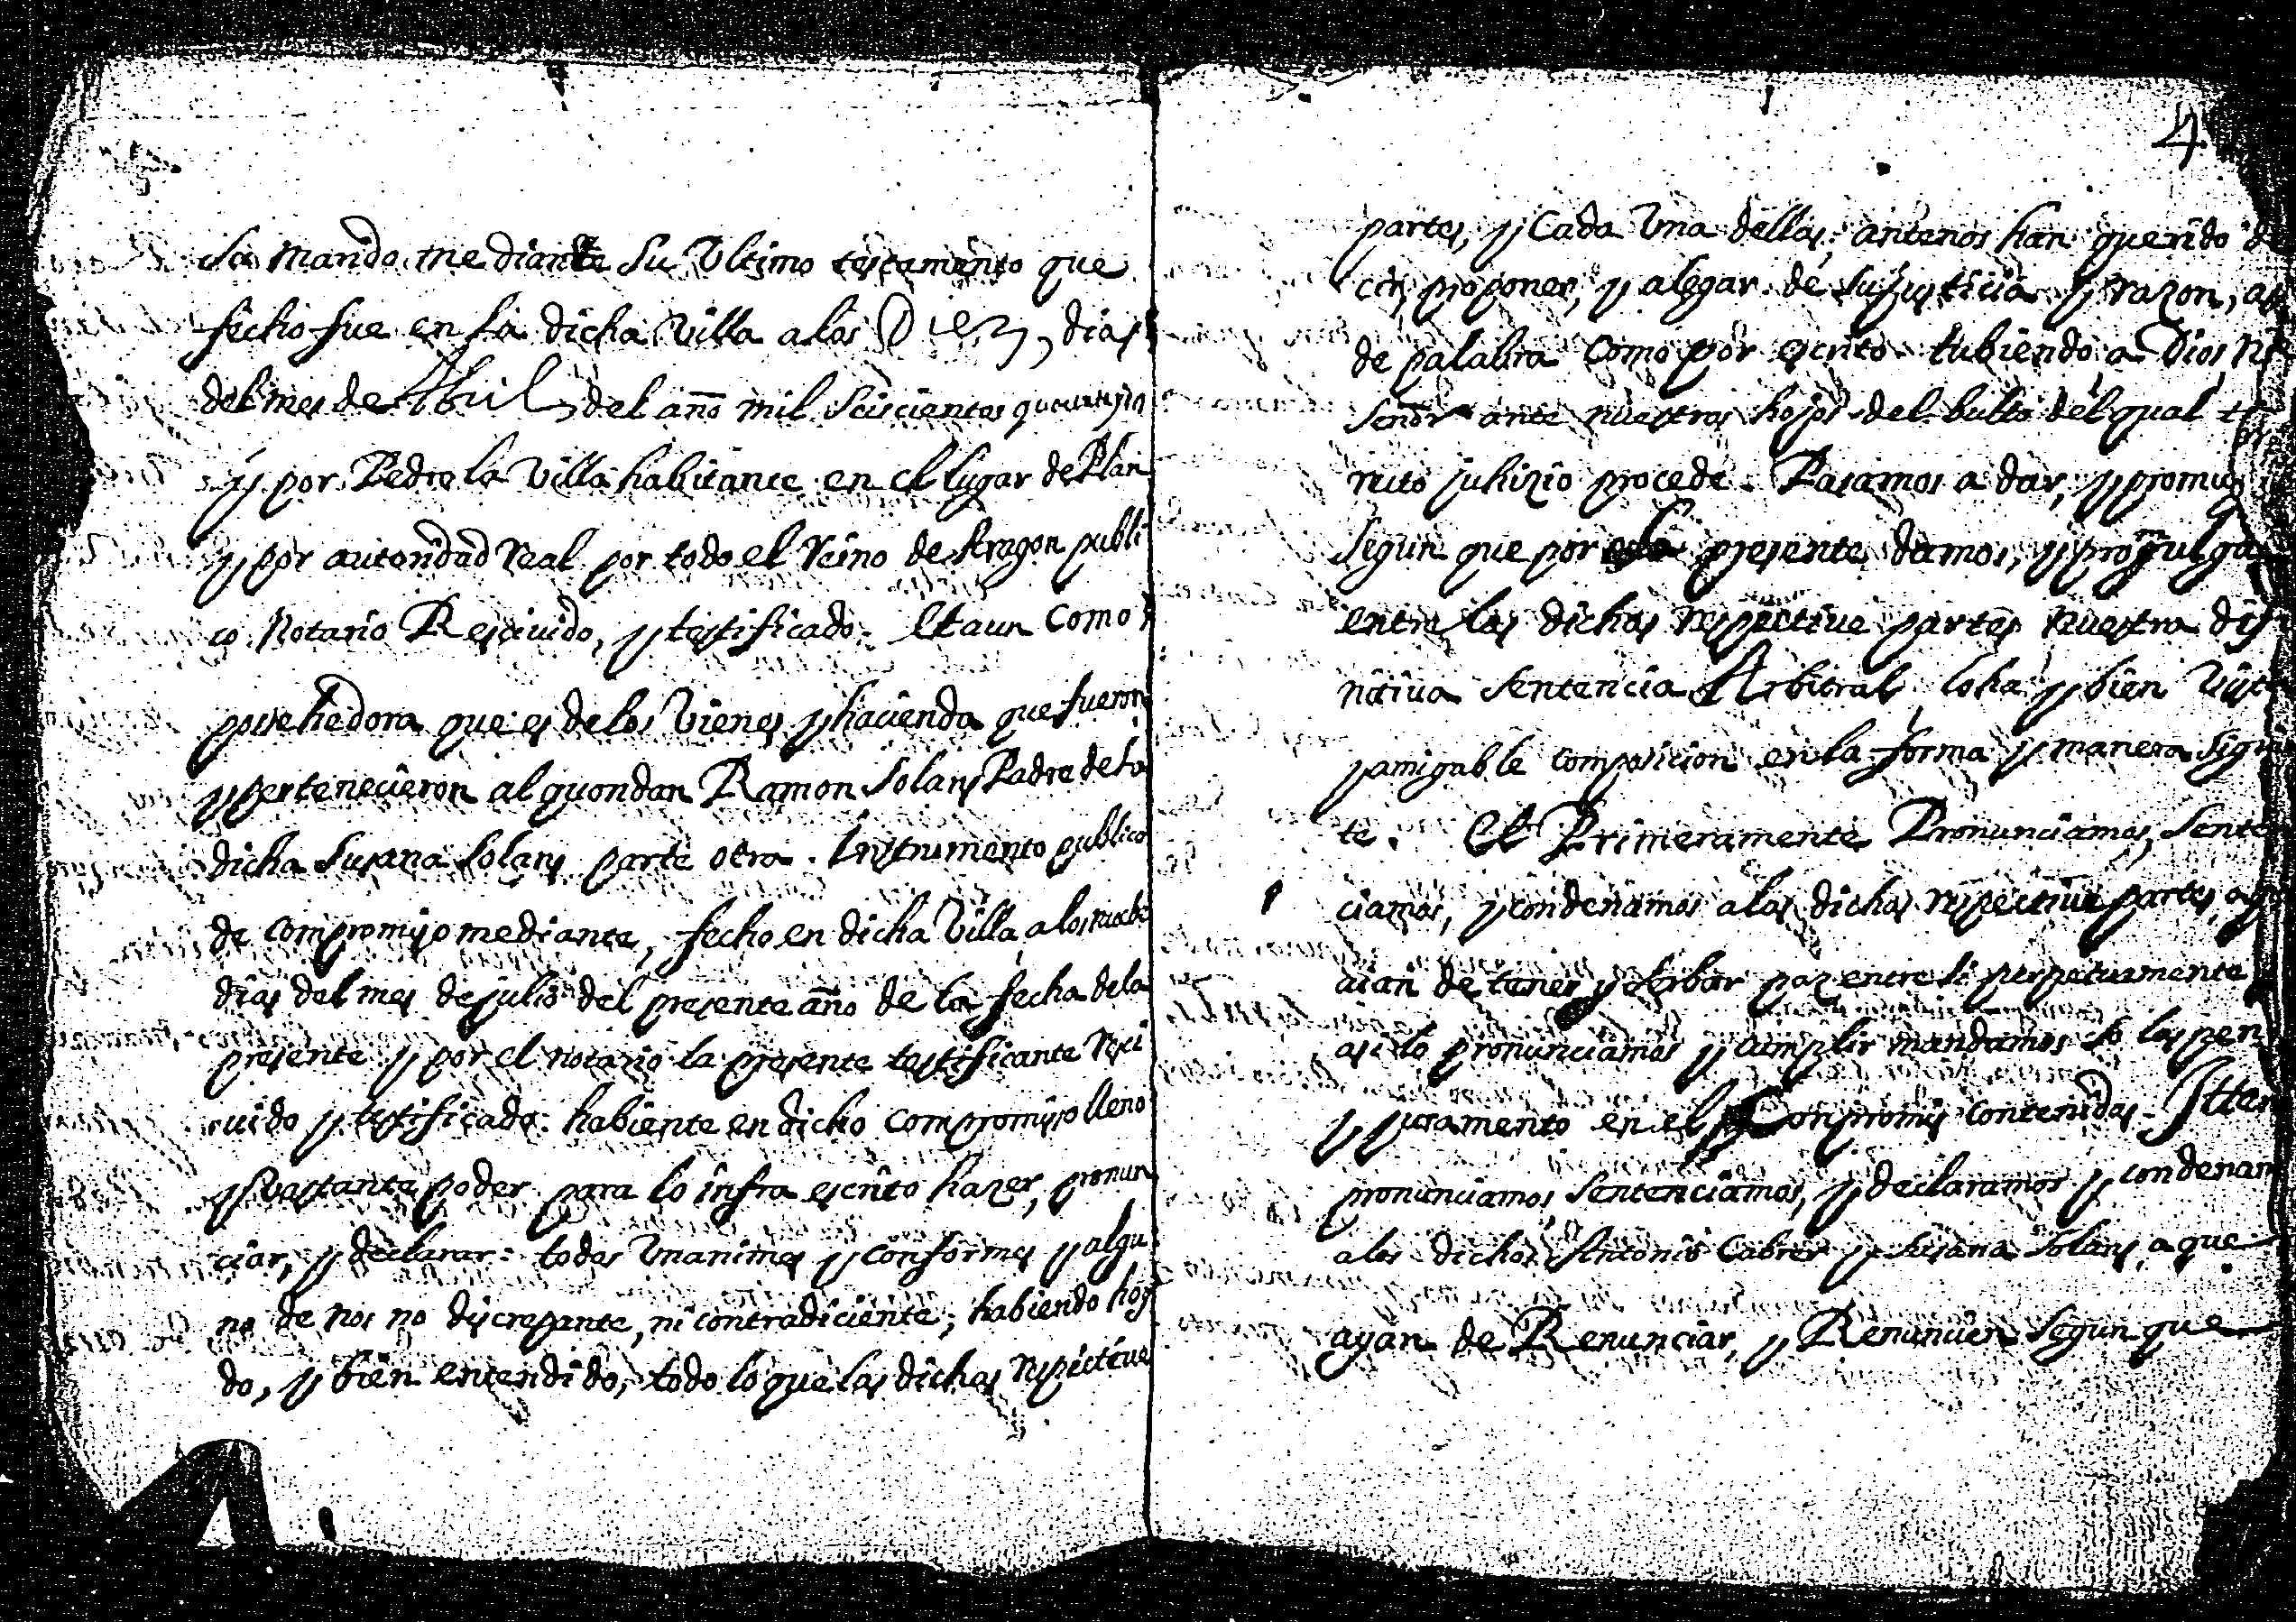 sa mando mediante su Ultimo testamento que
fecho fue en la dicha Villa a los Diez, dias
del mes de Abril del año mil seiscientos quarenta
y por Pedro la Villa habitante en el lugar de Plan
y por autoridad Real por todo el Reino de Aragon publi
co Notario Rescivido, y testificado. Et aun como
posehedora que es de los Vienes y hacienda que fueron
y pertenecieron al quondan Ramon Solans Padre de la
dicha Susana Solans parte otra. Instrumento publico
de compromiso mediante, fecho en dicha Villa a los nuebe
dias del mes de julio del presente año de la fecha de la
presente y por el notario la presente testificante Resci
uido y testificado. habiente en dicho compromiso lleno
y bastante poder para lo infra escrito hazer, pronun
ciar, y declarar. todos Unanimes y conformes y algu
no de nos no discrepante, ni contradiciente, habiendo hoy
do, y bien entendido, todo lo que las dichas respective
4
partes, y Cada Una dellas, antenos han querido de
cir, proponer, y alegar de su justicia y razon, asi
de palabra como por escrito tubiendo a Dios
señor ante nuestros hojos del bulto del qual
recto juhizio procede. Pasamos a dar, y promul
segun que por esta presente damos, y promulga
entre las dichas respective partes nuestra difi
nitiua sentencia Arbitral loha y bien Vist
y amigable composicion en la forma y manera sigui
te. Et Primeramente Pronunciamos, Sente
ciamos, y condenamos a las dichas respective partes, a
aian de tener y serbar paz entre si perpetuamente
asi lo pronunciamos y cumplir mandamos so las pen
y juramento en el Compromis contenidas. Itten
pronunciamos sentenciamos, y declaramos y condenam
a los dichos Antonio Cabrer y Susana Solans, a que
ayan de Renunciar, y Renuncien segun que